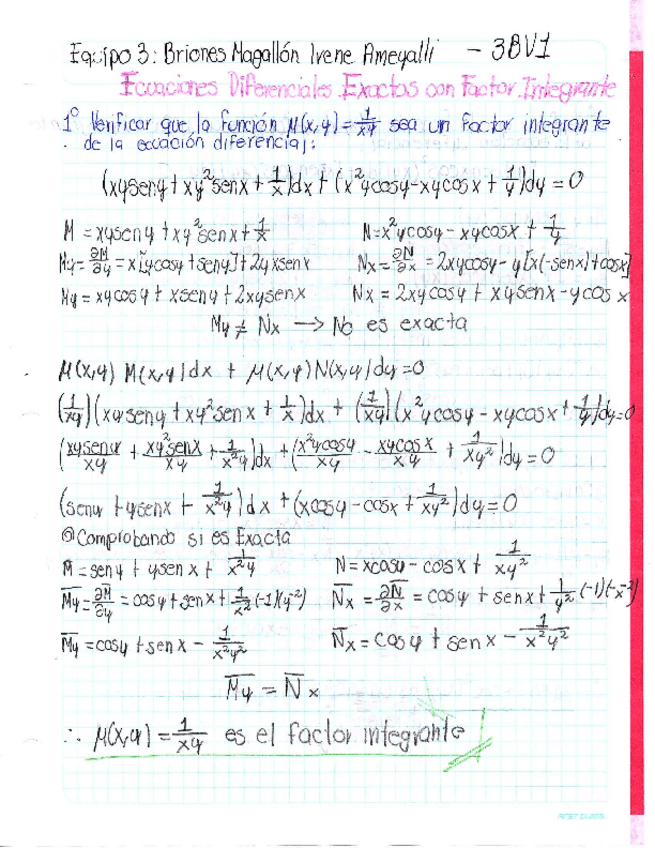 Equipo 3: Briones Magallón Irene Ameyalli - 3BV1
Ecuaciones Diferenciales Exactas con Factor Integrante
1° Verificar que la función M(x,y) = 1/xy sea un factor integrante
de la ecuación diferencial:
(xyseny + xy²senx + 1/x)dx + (x²ycosy - xycosx + 1/y)dy = 0
M = xyseny + xy²senx + 1/x    N = x²ycosy - xycosx + 1/y
My = ∂M/∂y = x[ycosy + seny] + 2yxsenx    Nx = ∂N/∂x = 2xycosy - y[x(-senx) + cosx]
My = xycosy + xseny + 2xysenx    Nx = 2xycosy + xysenx - ycosx
My ≠ Nx → No es exacta
M(x,y) M(x,y)dx + M(x,y)N(x,y)dy = 0
(1/xy)(xyseny + xy²senx + 1/x)dx + (1/xy)(x²ycosy - xycosx + 1/y)dy = 0
(xyseny/xy + xy²senx/xy + 1/x²y)dx + (x²ycosy/xy - xycosx/xy + 1/xy²)dy = 0
(seny + ysenx + 1/x²y)dx + (xcosy - cosx + 1/xy²)dy = 0
Comprobando si es Exacta
M̄ = seny + ysenx + 1/x²y    N = xcosy - cosx + 1/xy²
M̄y = ∂M̄/∂y = cosy + senx + 1/x² (-1)(y⁻²)    N̄x = ∂N̄/∂x = cosy + senx + 1/y² (-1)(-x⁻²)
M̄y = cosy + senx - 1/x²y²    N̄x = cosy + senx - 1/x²y²
M̄y = N̄x
∴ M(x,y) = 1/xy es el factor integrante